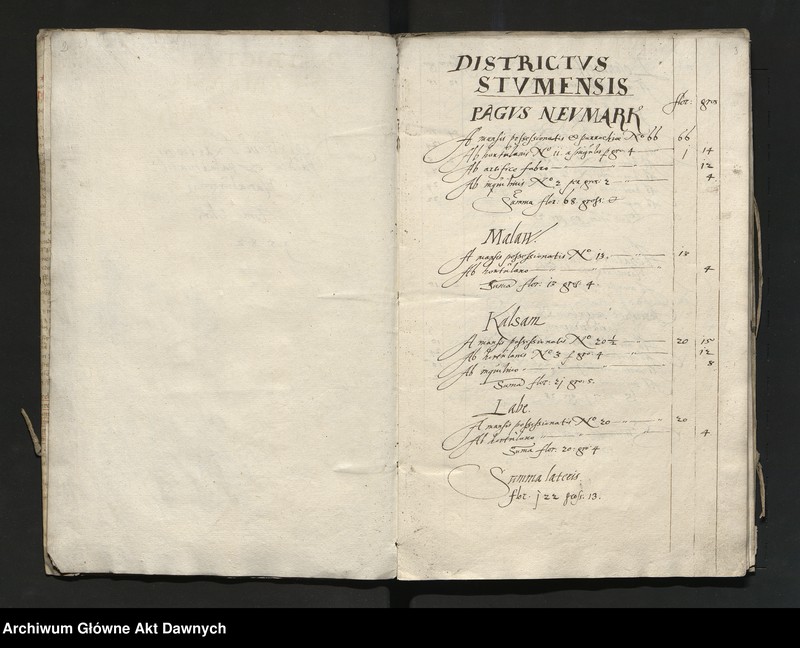 DISTRICTVS
STVMENSIS
PAGVS NEVMARK
flor: gros
A mansis possessionatis et parrochi Nº 66 66
Ab hortulanis Nº 11. a singulis p gr. 4 1 14
Ab artifice fabro 12
Ab inquilinis Nº 2 per gros: 2 4
Summa flor: 68. gross:
Malaw.
A mansis possessionatis Nº 18. 18
Ab hortulano 4
Suma flor: 18 gros 4.
Kalsam
A mansis possessionatis Nº 20½ 20 15
Ab hortulanis Nº 3 p gr: 4 12
Ab inquilino 8
Suma flor: 21 gro: 5.
Labe.
A mansis possessionatis Nº 20 20
Ab hortulano 4
Suma flor. 20. gr 4
Summa lateris.
flor. 122 gros: 13.
Archiwum Główne Akt Dawnych